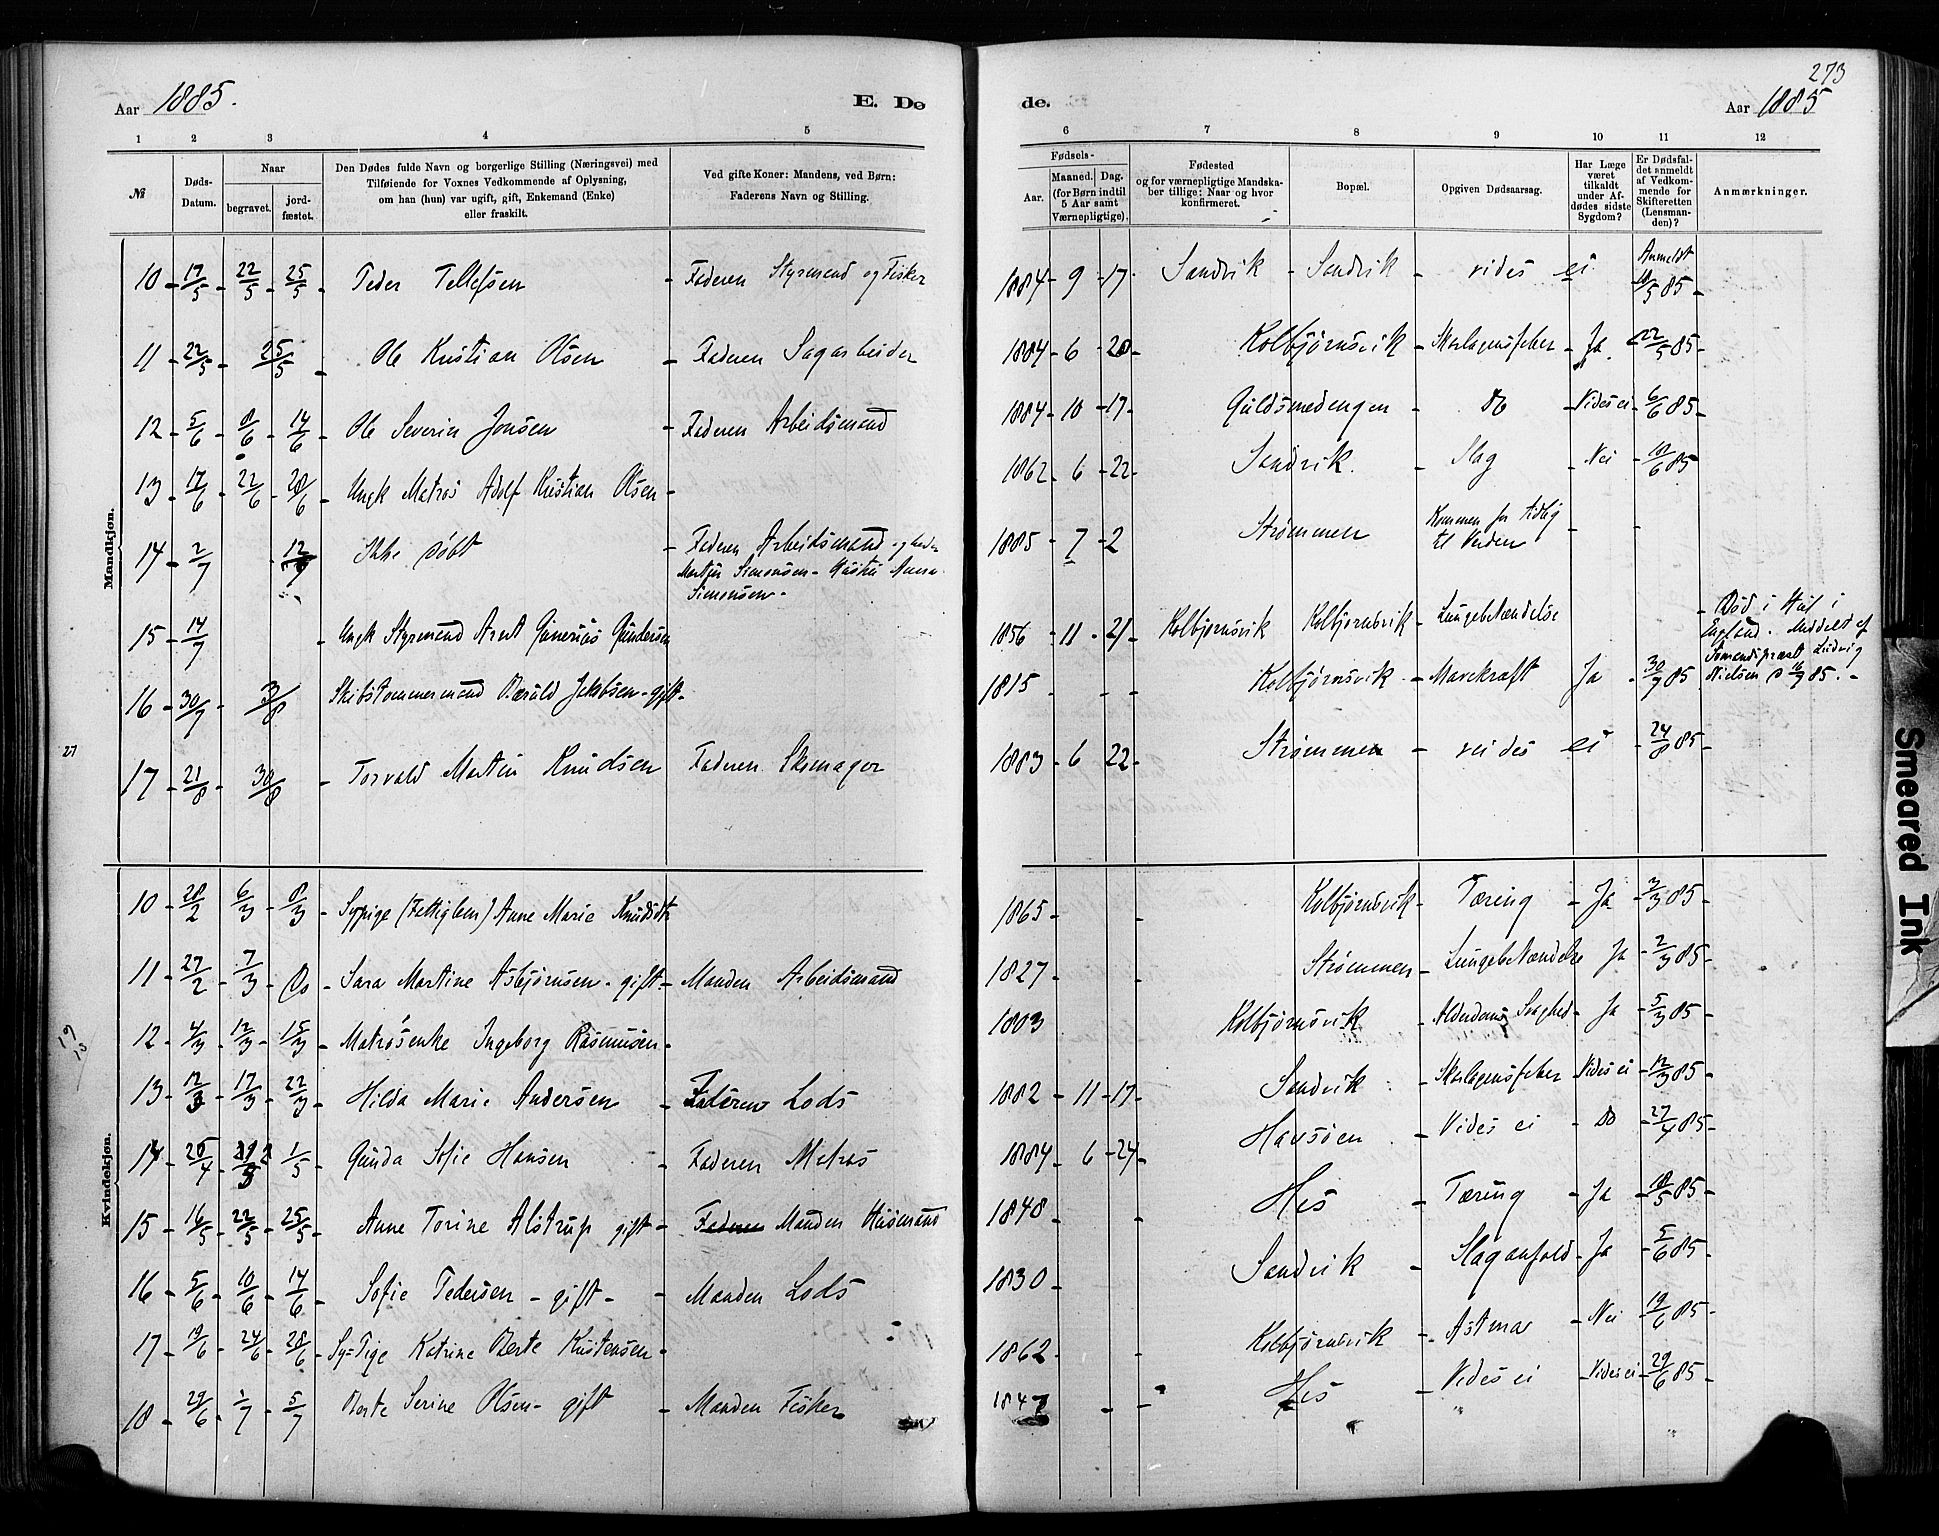 Aar 1885. E. Dø
1 2 3 4 5
№ Døds-Datum. Naar begravet. jordfæstet. Den Dødes fulde Navn og borgerlige Stilling (Næringsvei) med Tilføiende for Voxnes Vedkommende af Oplysning, om han (hun) var ugift, gift, Enkemand (Enke) eller fraskilt. Ved gifte Koner: Mandens, ved Børn: Faderens Navn og Stilling.
Mandkjøn.
10 17/5 22/5 25/5 Peder Tellefsen Faderen Styrmand og Fisker
11 22/5 25/5 Ole Kristian Olsen Faderen Sagarbeider
12 5/6 8/6 14/6 Ole Severin Jensen Faderen Arbeidsmand
13 17/6 22/6 28/6 Ungk Matros Adolf Kristian Olsen
14 2/7 12/7 Ikke døbt Faderen Arbeidsmand
Martin Simonsen - Hustru Anna
Simonsen -
15 14/7 Ungk Styrmand Arnt Gunerius Gundersen
16 30/7 3/8 Skibstømmermand Bæruld Jakobsen - gift -
27
17 21/8 30/8 Torvald Martin Knudsen Faderen Skomager
Kvindekjøn.
10 28/2 6/3 8/3 Sypige (Fattiglem) Anne Marie Knudsdtr
11 27/2 7/3 Do Sara Martine Asbjørnsen - gift - Manden Arbeidsmand
12 4/3 12/3 15/3 Matrosenke Ingeborg Rasmusen
13 12/3 17/3 22/3 Hilda Marie Andersen Faderen Lods
14 25/4 1/5 Gunda Sofie Hansen Faderen Matros
15 16/5 22/5 25/5 Anne Torine Alstrup gift Faderen Manden Husmand
16 5/6 10/6 14/6 Sofie Pedersen - gift - Manden Lods
17 19/6 24/6 28/6 Sy-Pige Katrine Berte Kristensen
18 29/6 1/7 5/7 Berte Serine Olsen - gift Manden Fisker
273
de. Aar 1885
6 7 8 9 10 11 12
Fødsels- Aar. Maaned. Dag. (for Børn indtil 5 Aar samt Værnepligtige). Fødested og for værnepligtige Mandskaber tillige: Naar og hvor konfirmeret. Bopæl. Opgiven Dødsaarsag. Har Læge været tilkaldt under Afdødes sidste Sygdom? Er Dødsfaldet anmeldt af Vedkommende for Skifteretten (Lensmanden)? Anmærkninger.
1884 - 9 - 17 - Sandvik - Sandvik - vides ei Anmeldt 18/5 85
1884 - 6 - 20 - Kolbjørnsvik - Skarlagensfeber - Ja 22/5 85
1884 - 10 - 17 - Guldsmedengen - Do - Vides ei - 6/6 85
1862 - 6 - 22 Sandvik. - Slag - Nei - 18/6 85
1885 - 7 - 2 Strømmen Kommen for tidlig
til Verden
1856 - 11 - 21 - Kolbjørnsvik Kolbjørnsvik - Lungebetændelse - Død i Hul i
England. Meddelt af
Sømandspræst Ludvig
Nielsen d 16/7 85. -
1815 Kolbjørnsvik - Marekraft Ja 30/7 85
1883 - 6 22 Strømmen - veides ei - 24/8 85
1865 Kolbjørnsvik - Tæring - Ja - 3/3 85
1827 Strømmen - Lungebetændelse Ja - 2/3 85
1803 Kolbjørnsvik - Alderdoms Svaghed - Ja - 5/3 85
1882 - 11 - 17 - Sandvik - Skarlagensfeber - Vides ei - 12/3 85
1884 - 6 - 24 Havsøen - Vides ei - Do - 27/4 85
1848 His - Tæring - Ja - 18/5 85
1830 Sandvik - Slaganfald - Ja - 5/6 85
1862 Kolbjørnsvik - Astma - Nei - 19/6 85
1847 His - Vides ei - Vides ei - 29/6 85
Smeared Ink